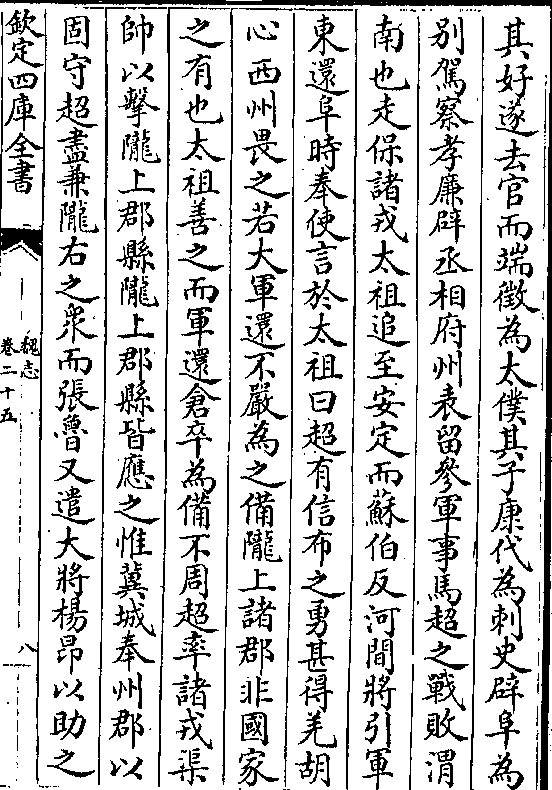 其好遂去官而端徵為太僕其子康代為刺史辟阜為
别駕察孝廉辟丞相府州表留參軍事馬超之戰敗渭
南也走保諸戎太祖追至安定而蘇伯反河間將引軍
東還阜時奉使言於太祖曰超有信布之勇甚得羌胡
心西州畏之若大軍還不嚴為之備隴上諸郡非國家
之有也太祖善之而軍還倉卒為備不周超率諸戎渠
帥以擊隴上郡縣隴上郡縣皆應之惟冀城奉州郡以
固守超盡兼隴右之衆而張魯又遣大將楊昂以助之
欽定四庫全書
魏志
卷二十五
八